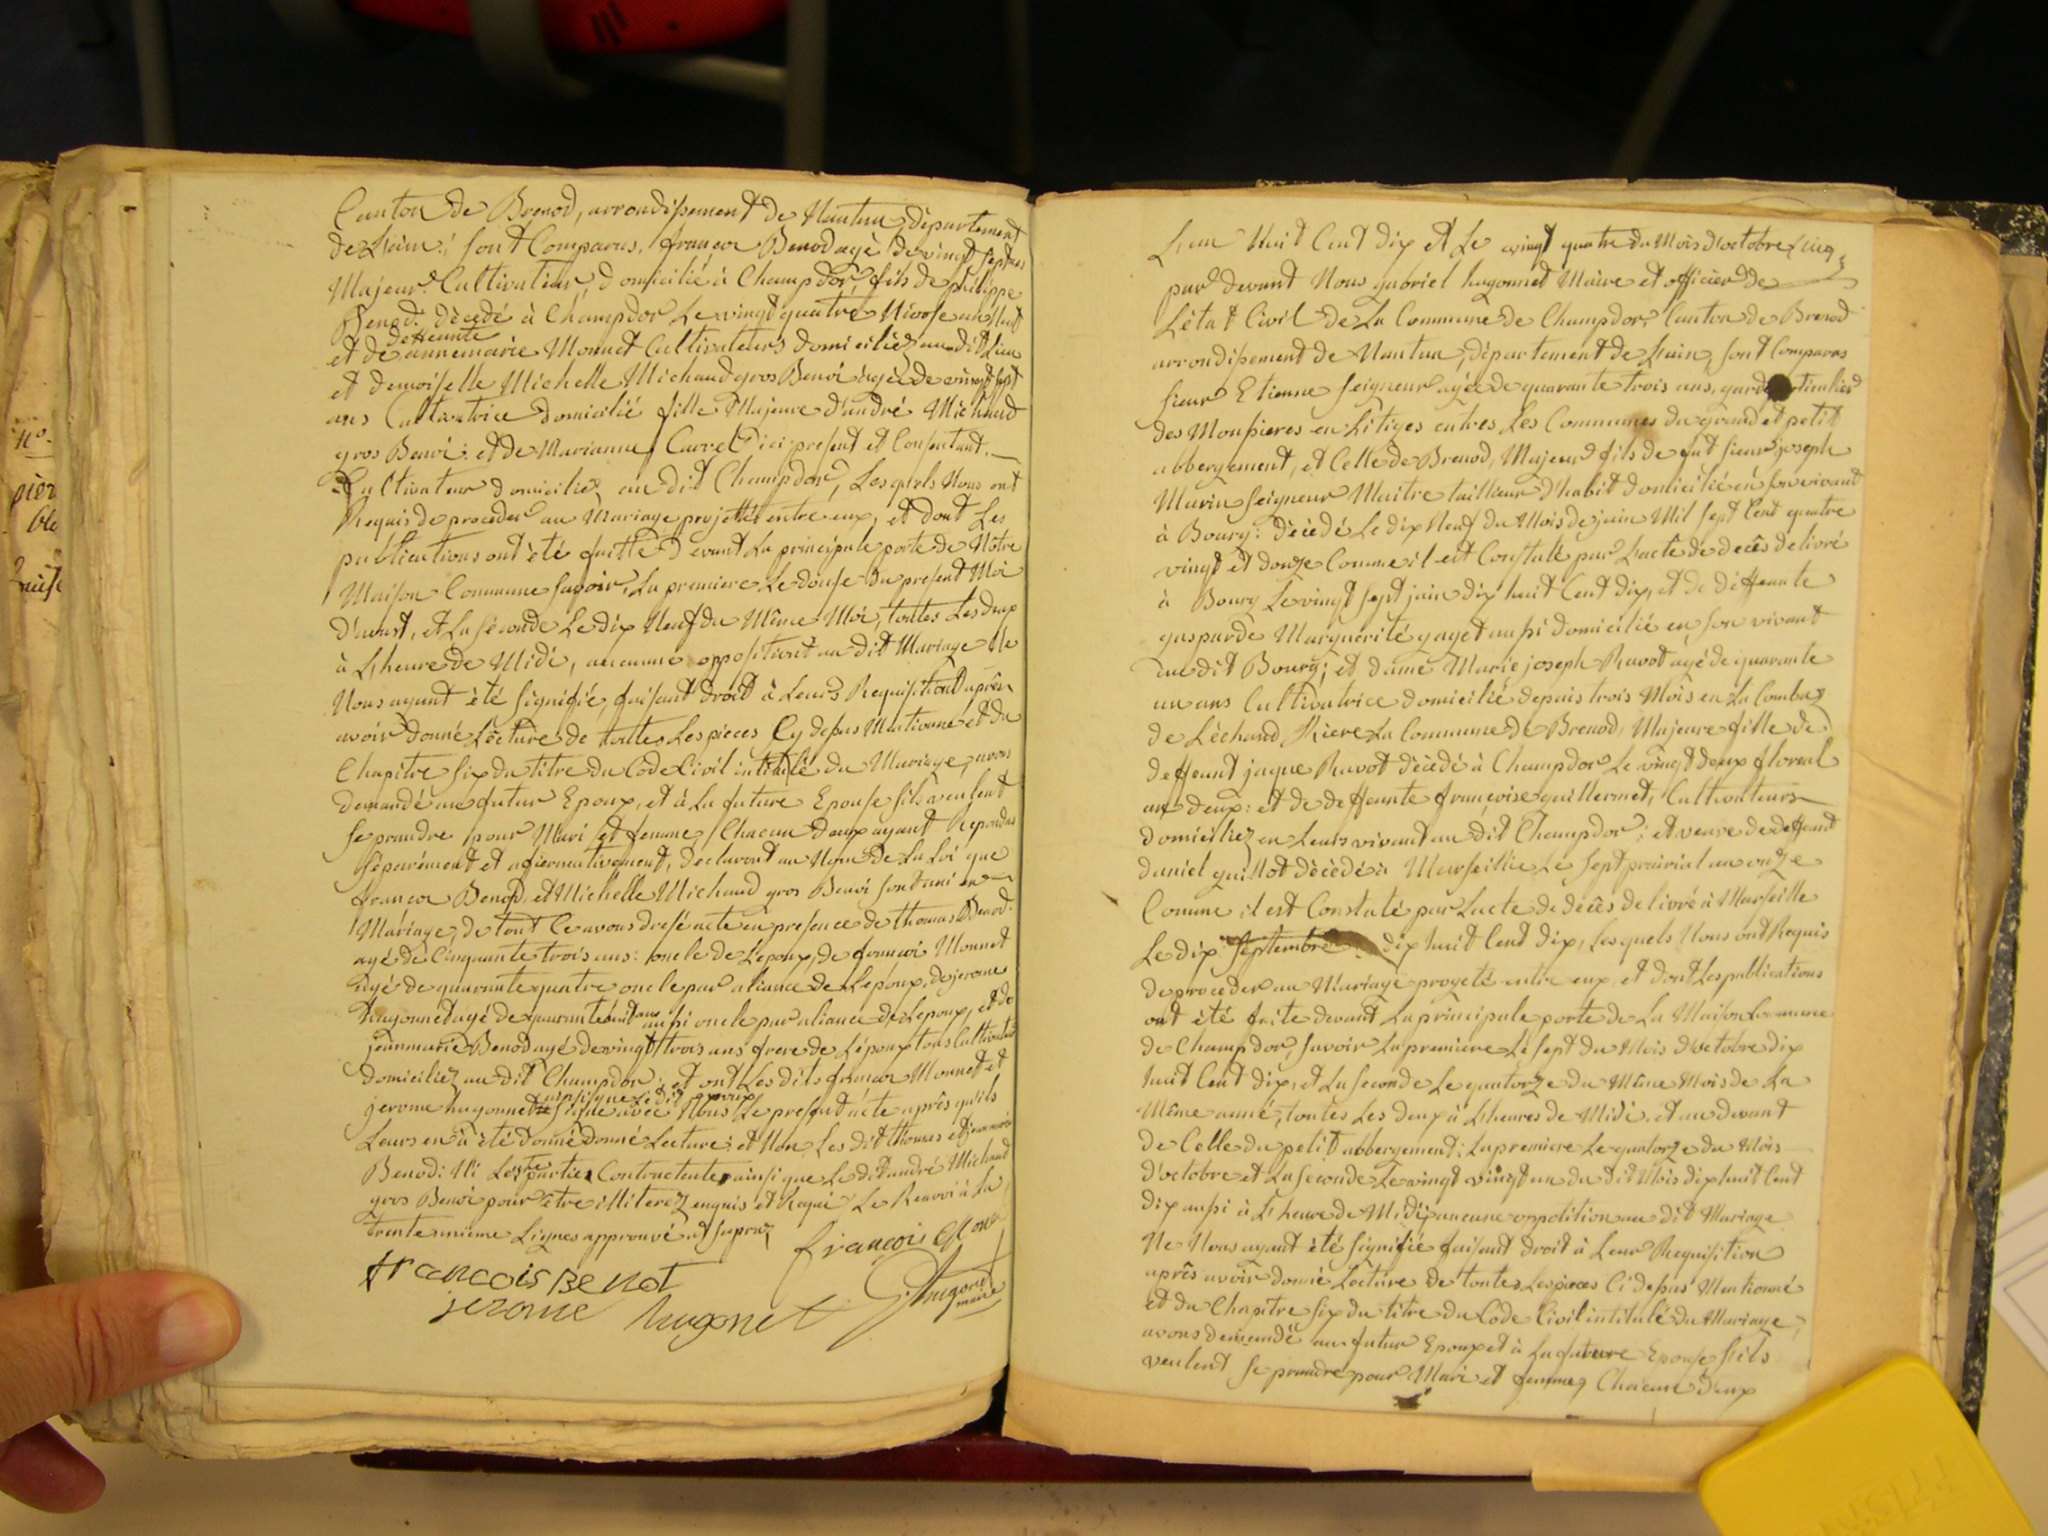 Canton de Brenod, arrondissement de Nantua, département
de L'ain; sont Comparus, françoi Benod agé de vingt sept ans
Majeur Cultivateur, domicilié à Champdor, fils de philippe
Benod: décédé à Champdor Le vingt quatre Nivose an huit
deffeunte
et de annemarie Monnet Cultivateurs domiciliez au dit Lieu
et demoiselle Michelle Michaud gros Benoi agée de vingt sept
ans Cultivatrice domicilié fille Majeure d'andré Michaud
gros Benoi: et de Marianne Carrel ici present et Consentant.
Cultivateur domicilié au dit Champdor, Lesquels Nous ont
Requis de proceder au Mariage projetté entre eux, et dont Les
publications ont été faitte devant La principale porte de Notre
Maison Commune savoir, La premiere Le douse du present Moi
d'aoust, et La seconde Le dix Neuf du Même Moi, toutes Les deux
à L'heure de Midi, aucunne oppositiont au dit Mariage Ne
Nous ayant été signifié, faisant droit à Leurs Requisitiont après
avoir donné Lecture de toutes Les pieces Cy dessus Mationné et du
Chapitre six du titre du Code Civil intitulé du Mariage, avons
demandé au futur Epoux, et à La future Epouse s'ils veulent
se prandre pour Mari et femme, Chacun deux ayant Repondu
séparément et affirmativement, déclaront au Nom de La Loi que
françoi Benod, et Michelle Michaud gros Benoi sont uni en
Mariage, de tout Ce avons dresé acte en presence de thomas Benod.
agé de Cinquante trois ans: oncle de L'epoux, de françoi Monnet
agé de quarante quatre oncle par aliance de L'epoux, de jerome
hugonnet agé de quarante huit ans aussi oncle par aliance de L'epoux, et de
jeanmarie Benod agé de vingt trois ans frere de L'époux tous Cultivateur
domiciliez au dit Champdor; et ont Les dits françoi Monnet et
ainsi que Le dit epoux
jerome hugonnet signé avec Nous Le present acte après qu'ils
Leurs en à été donné donné Lecture: et Non Les dit thomas et jeanmarie
Benod: Ni Les partie Contractente ainsi que Le dit andré Michaud
gros Benoi pour être illiterez enquis et Requi Le Renvoi à La
trente unieme Lignes approuvé
françois Benot
françois Mone
jerome hugonet
G. hugonet
maire
L'an huit Cent dix et Le vingt quatre du Mois d'octobre
par devant Nous gabriel hugonnet Maire et officier de
L'état Civil de La Commune de Champdor, Canton de Brenod
arrondissement de Nantua, département de L'ain, sont Comparus
sieur Etienne seigneur agée de quarante trois ans, garde
des Moussieres en Litiges entres Les Communes du grand et petit
abbergement, et Celle de Brenod, Majeur fils de fut sieur joseph
Marin seigneur Maitre tailleur d'habit domicilié en son vivant
à Bourg: décédé Le dix Neuf du Mois de juin Mil sept Cent quatre
vingt et donze Comme il est Constaté par L'acte de decès delivré
à Bourg Le vingt sept juin dix huit Cent dix, et de deffeunte
gasparde Marguerite gayet aussi domicilié en son vivant
au dit Bourg; et dame Marie joseph Ravot agé de quarante
un ans Cultivatrice domicilié depuis trois Mois en La Combe
de Léchaud Riere La Commune de Brenod, Majeure fille de
deffeunt jaque Ravot décédé à Champdor Le vingt deux floreal
an deux: et de deffeunte françoise guillermet, Cultivateurs
domiciliez en Leurs vivant au dit Champdor; et veuve de deffeunt
daniel guillot décédé à Marseillie Le sept prairial an onze
Comme il est Constaté par L'acte de décès delivré à Marseille
Le dix septembre dix huit Cent dix, Lesquels Nous ont Requis
de proceder au Mariage progeté entre eux, et dont Les publications
ont été faite devant La principale porte de La Maison Commune
de Champdor, savoir La premiere Le sept du Mois d'octobre dix
huit Cent dix, et La seconde Le quatorze du Même Mois de La
Même anné, toutes Les deux à L'heures de Midi. et au devant
de Celle du petit abbergement; La premiere Le quatorze du Mois
d'octobre et La seconde Le vingt vingt un du dit Mois dix huit Cent
dix aussi à L'heure de Midi, aucune oppotition au dit Mariage
Ne Nous ayant été signifié faisant droit à Leur Requisition
après avoir donné Lecture de toutes Les pieces Ci dessus Mentionné
et du Chapitre six du titre du Code Civil intitulé du Mariage,
avons demandé au futur Epoux et à La future Epouse s'ils
veulent se prandre pour Mari et femme, Chacun d'eux